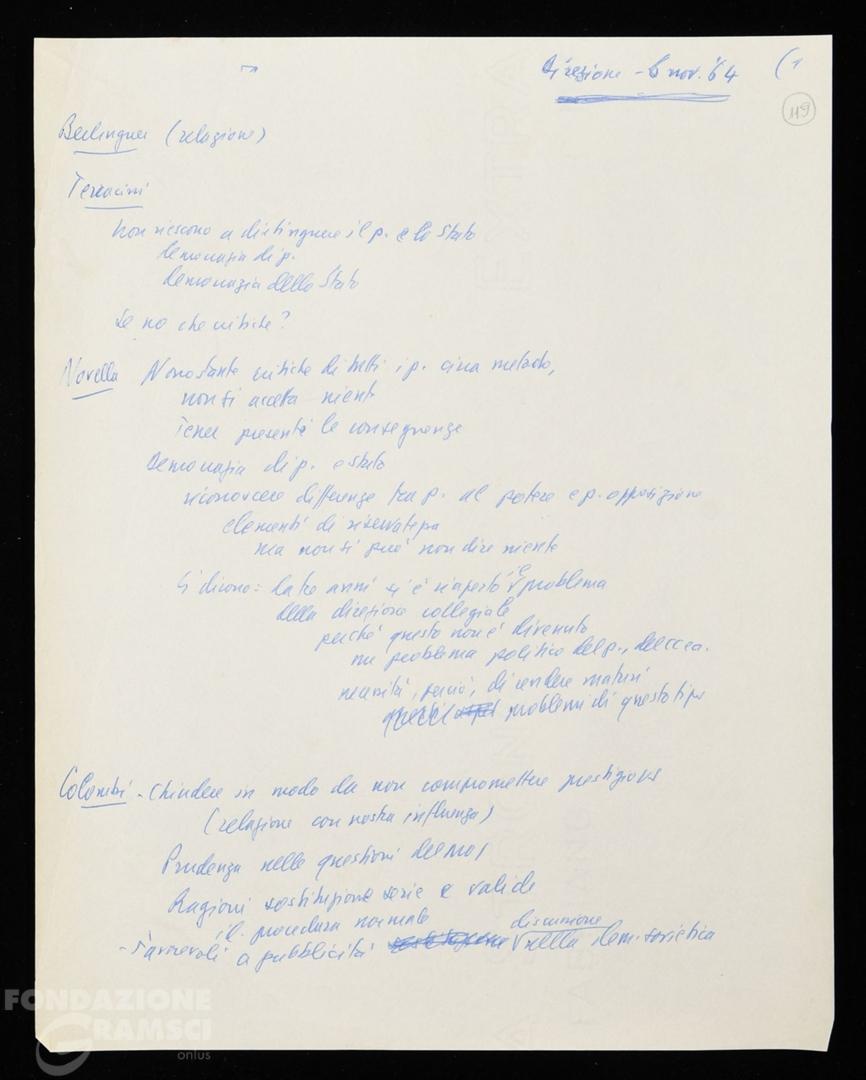 Direzione - 6 nov. '64 (1
119
Berlinguer (relazione)
Terracini
Non riescono a distinguere il p. e lo Stato
democrazia di p.
democrazia dello Stato
Se no che critiche?
Novella Nonostante critiche di tutti i p. circa metodo,
non si accetta niente
Tener presenti le conseguenze
Democrazia di p. e stato
riconoscere differenze tra p. al potere e p. opposizione
elementi di riservatezza
ma non si può non dire niente
Si dicono: da tre anni si è riaperto il problema
della direzione collegiale
perché questo non è divenuto
un problema politico del p., del cc ecc.
necessità, perciò, di rendere maturi
problemi di questo tipo
Colombi - Chiudere in modo da non compromettere prestigio US
(relazione con nostra influenza)
Prudenza nelle questioni del MOI
Ragioni sostituzione serie e valide
procedura normale
- Favorevoli a pubblicità discussione nella dem. sovietica
FONDAZIONE
GRAMSCI
onlus